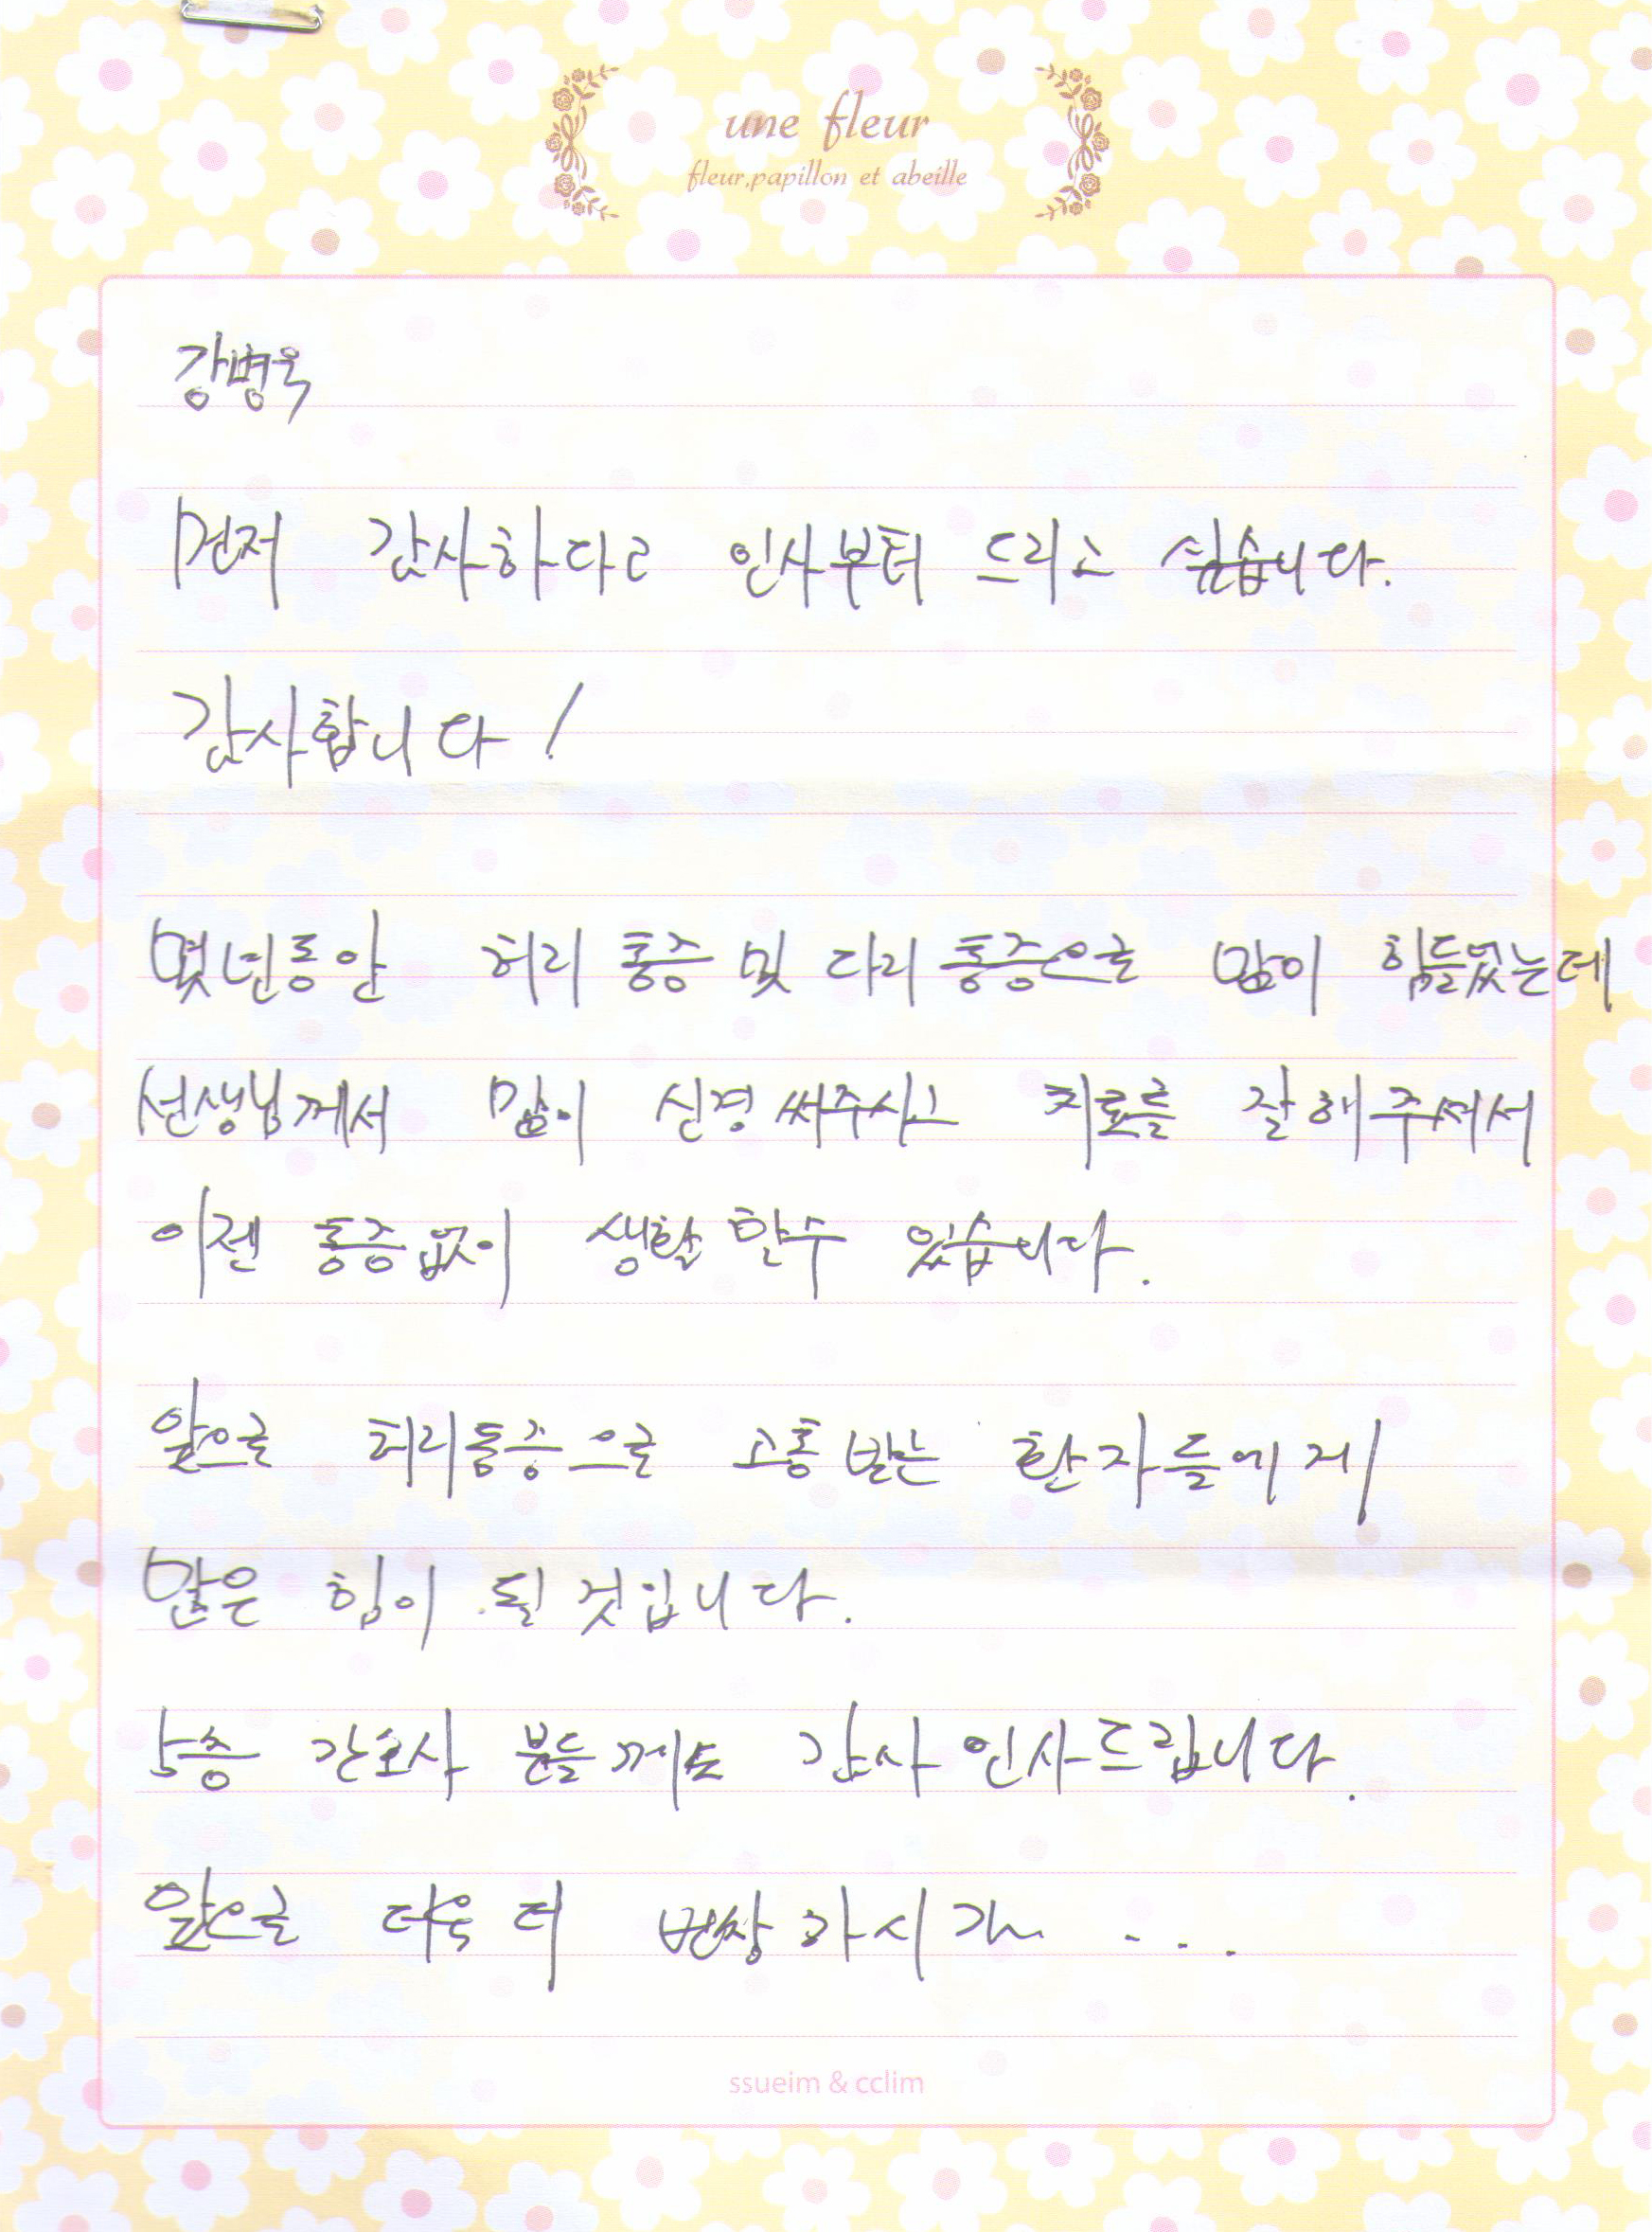 une fleur
fleur,papillon et abeille
강병옥
먼저 감사하다고 인사부터 드리고 싶습니다.
감사합니다!
몇년동안 허리 통증 및 다리 통증으로 많이 힘들었는데
선생님께서 많이 신경써주시고 치료를 잘해주셔서
이젠 통증없이 생활할수 있습니다.
앞으로 허리통증으로 고통받는 환자들에게
많은 힘이 될것입니다.
5층 간호사 분들께도 감사 인사드립니다.
앞으로 더욱 더 번창하시기 ...
ssueim & cclim